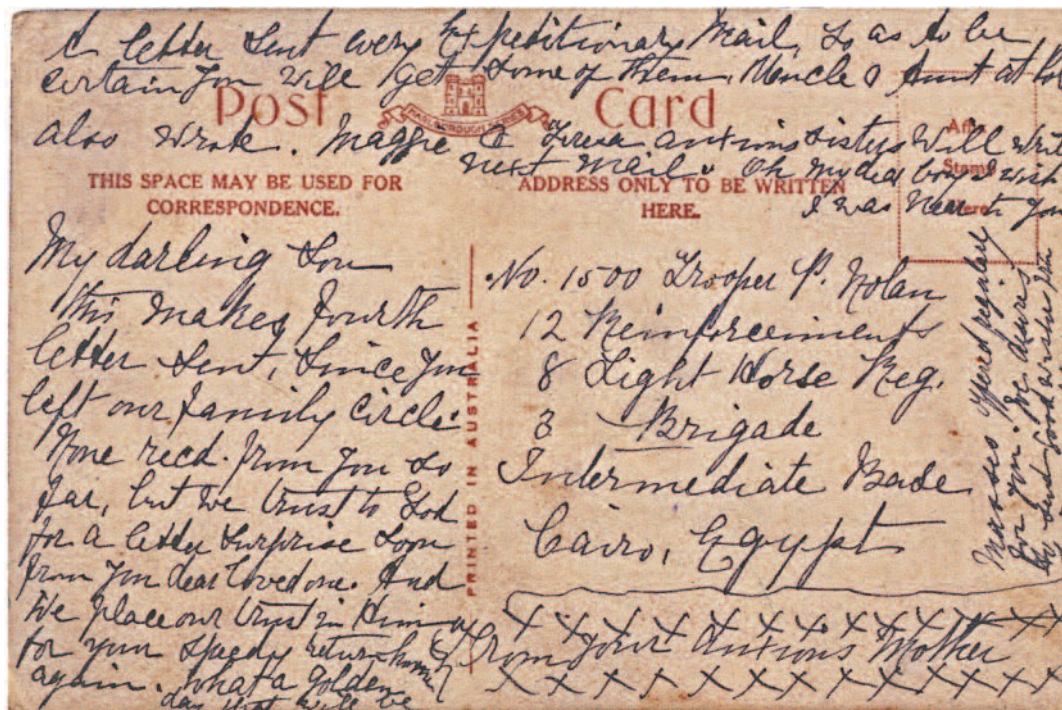 A letter sent every Expeditionary Mail, so as to be
certain you will get some of them. Uncle & Aunt at
also wrote. Maggie & anxious sisters will
next mail. Oh my dear boy I wish
I was near to you
Post Card
MARLBOROUGH SERIES
Affix
Stamp
Here
THIS SPACE MAY BE USED FOR
CORRESPONDENCE.
ADDRESS ONLY TO BE WRITTEN
HERE.
My darling Son
this makes fourth
letter sent, since you
left our family circle.
None recd. from you so
far, but we trust to God
for a letter surprise soon
from you dear loved one. And
we place our trust in Him
for your speedy return home
again. What a golden
day that will be
PRINTED IN AUSTRALIA
No. 1500 Trooper P. Nolan
12 Reinforcements
8 Light Horse Reg.
3 Brigade
Intermediate Base
Cairo, Egypt
x x x x x x x x x x x x x
From your anxious Mother
x x x x x x x x x x x x x
Masses offered regularly
for you.
send good wishes